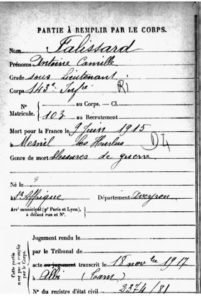 PARTIE À REMPLIR PAR LE CORPS.
Nom Falissard
Prénoms Antoine Camille
Grade sous Lieutenant
Corps 143e Infie
N° au Corps. — Cl.
Matricule. 107 au Recrutement
Mort pour la France le 9 Juin 1915
à Mesnil les Hurlus
Genre de mort blessures de guerre
Né le
à St Affrique Département Aveyron
Arr' municipal (pr Paris et Lyon),
à défaut rue et N°
Jugement rendu le
par le Tribunal de
acte ou jugement transcrit le 18 nov bre 1917
à Albi (Tarn)
N° du registre d'état civil 2374/81